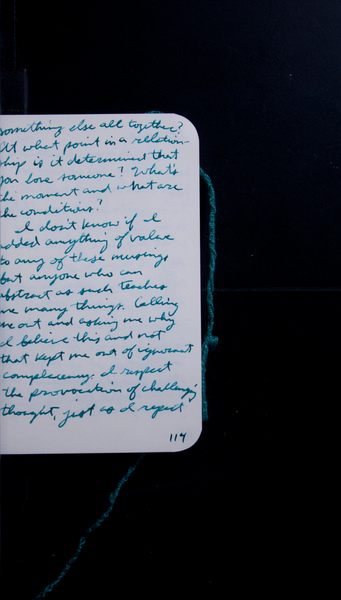 something else all together?
At what point in a relation-
ship is it determined that
you love someone? What's
the moment and what are
the conditions?
I don't know if I
added anything of value
to any of these musings
but anyone who can
abstract as such teaches
me many things. Calling
me out and asking me why
I believe this and not
that kept me out of ignorant
complacency. I respect
the provocation of challenging
thought, just as I respect
114